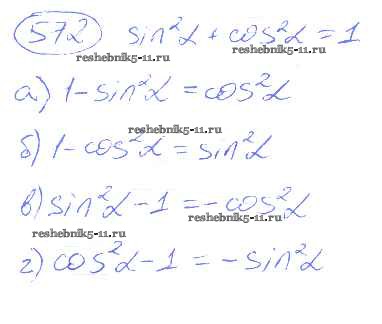 572 sin²α + cos²α = 1
reshebnik5-11.ru
reshebnik5-11.ru
а) 1 - sin²α = cos²α
reshebnik5-11.ru
б) 1 - cos²α = sin²α
в) sin²α - 1 = - cos²α
reshebnik5-11.ru
reshebnik5-11.ru
г) cos²α - 1 = - sin²α